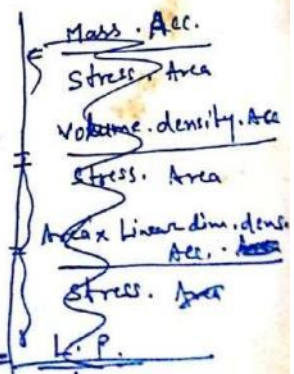 Mass. Acc.
Stress. Area
Volume. density. Acc
Stress. Area
Area x Linear dim. dens.
Acc.
Stress.
L. P.